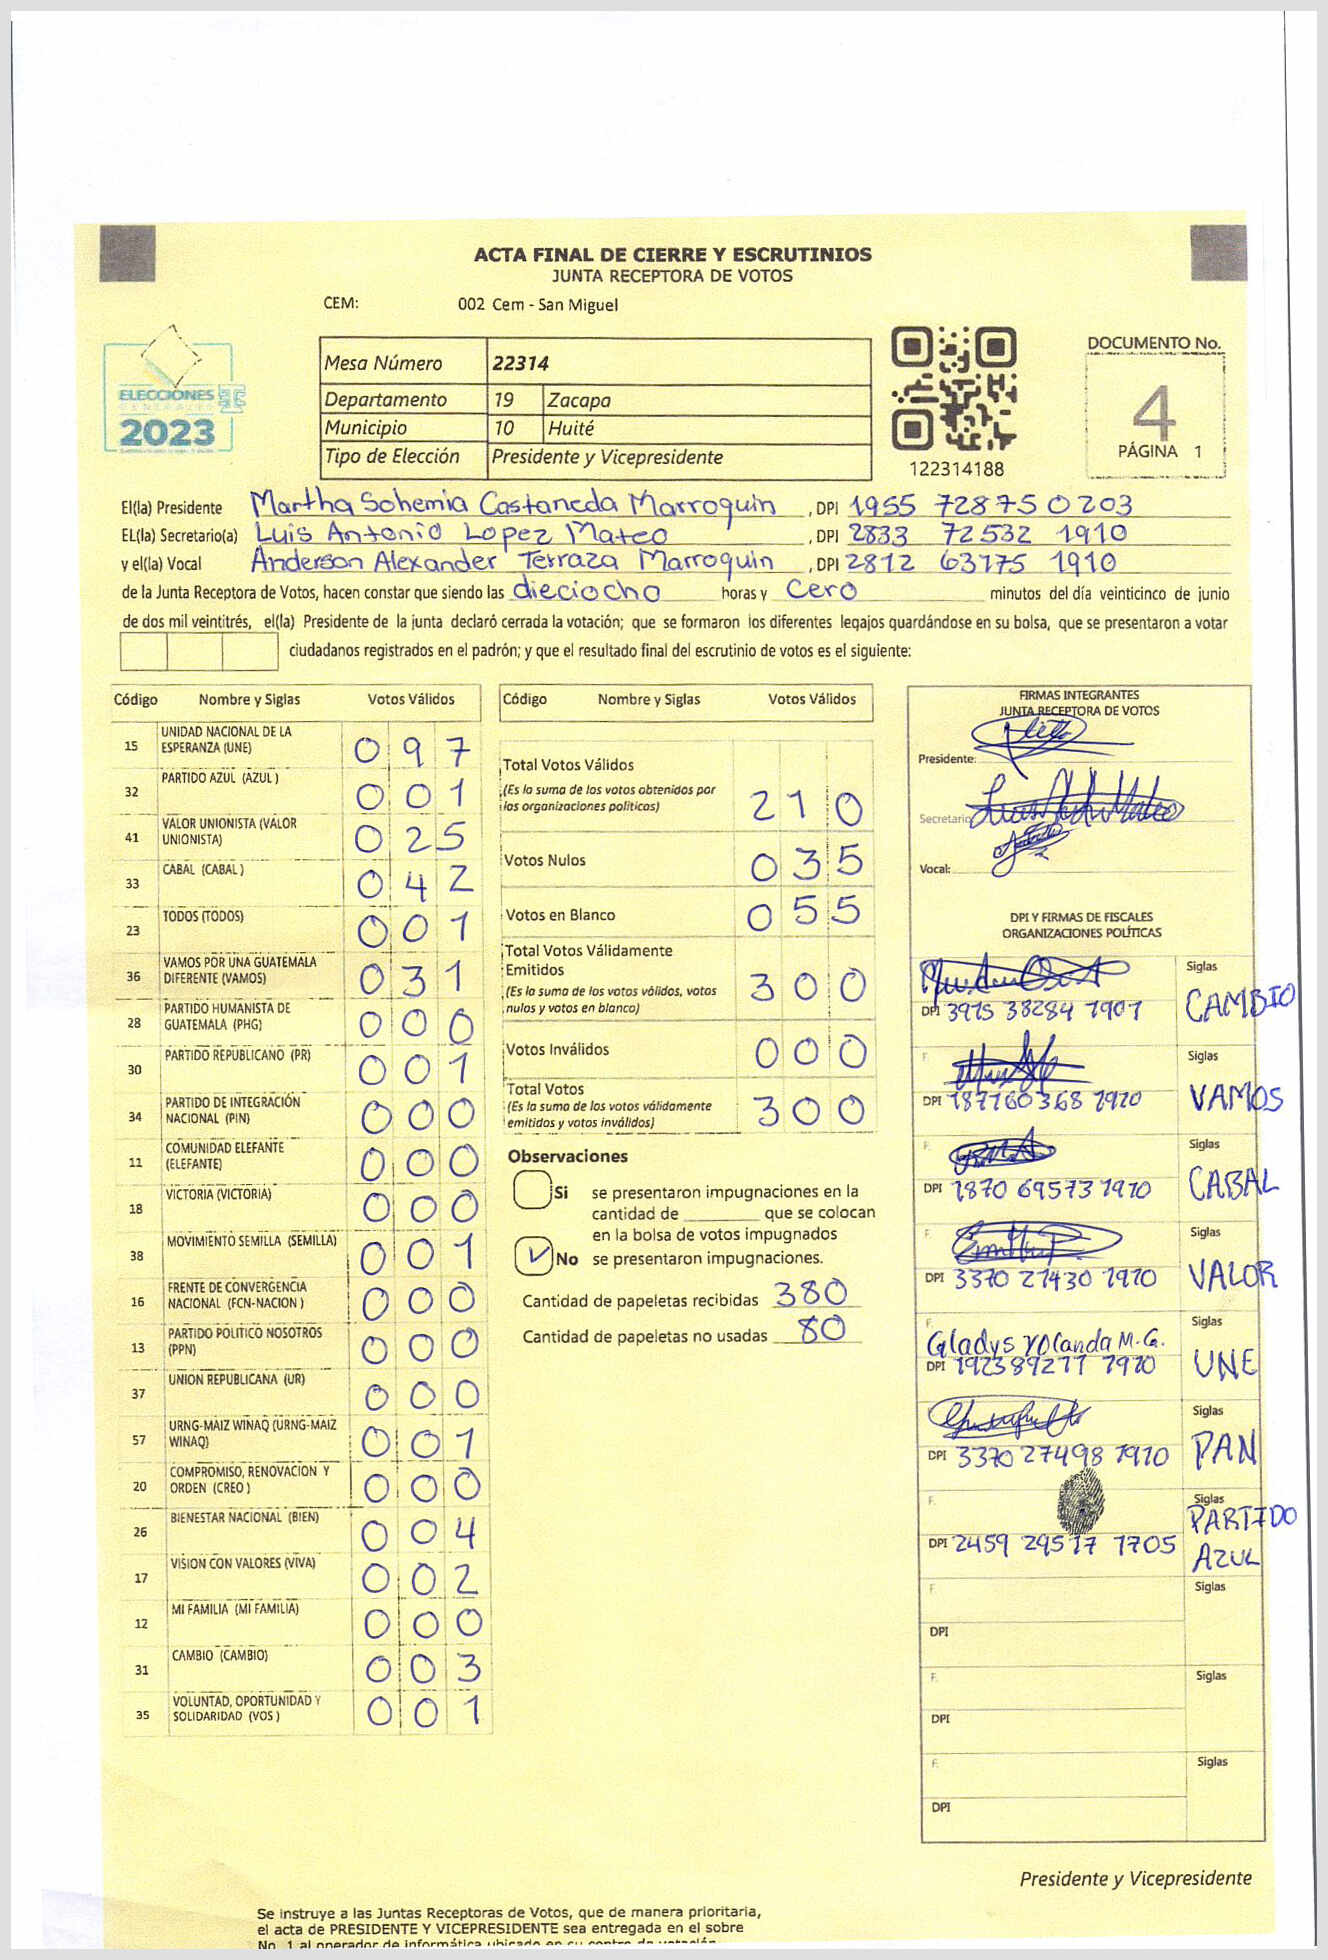 ACTA FINAL DE CIERRE Y ESCRUTINIOS
JUNTA RECEPTORA DE VOTOS
CEM: 002 Cem - San Miguel
ELECCIONES
GENERALES
2023
Mesa Número 22314
Departamento 19 Zacapa
Municipio 10 Huité
Tipo de Elección Presidente y Vicepresidente
122314188
DOCUMENTO No.
4
PÁGINA 1
El(la) Presidente Martha Sohemia Castaneda Marroquin , DPI 1955 72875 0203
EL(la) Secretario(a) Luis Antonio Lopez Mateo , DPI 2833 72532 1910
y el(la) Vocal Anderson Alexander Terraza Marroquin , DPI 2812 63175 1910
de la Junta Receptora de Votos, hacen constar que siendo las dieciocho horas y Cero minutos del día veinticinco de junio
de dos mil veintitrés, el(la) Presidente de la junta declaró cerrada la votación; que se formaron los diferentes legajos guardándose en su bolsa, que se presentaron a votar
ciudadanos registrados en el padrón; y que el resultado final del escrutinio de votos es el siguiente:
Código Nombre y Siglas Votos Válidos
15 UNIDAD NACIONAL DE LA ESPERANZA (UNE) 0 9 7
32 PARTIDO AZUL (AZUL ) 0 0 1
41 VALOR UNIONISTA (VALOR UNIONISTA) 0 2 5
33 CABAL (CABAL ) 0 4 2
23 TODOS (TODOS) 0 0 1
36 VAMOS POR UNA GUATEMALA DIFERENTE (VAMOS) 0 3 1
28 PARTIDO HUMANISTA DE GUATEMALA (PHG) 0 0 0
30 PARTIDO REPUBLICANO (PR) 0 0 1
34 PARTIDO DE INTEGRACIÓN NACIONAL (PIN) 0 0 0
11 COMUNIDAD ELEFANTE (ELEFANTE) 0 0 0
18 VICTORIA (VICTORIA) 0 0 0
38 MOVIMIENTO SEMILLA (SEMILLA) 0 0 1
16 FRENTE DE CONVERGENCIA NACIONAL (FCN-NACION ) 0 0 0
13 PARTIDO POLITICO NOSOTROS (PPN) 0 0 0
37 UNION REPUBLICANA (UR) 0 0 0
57 URNG-MAIZ WINAQ (URNG-MAIZ WINAQ) 0 0 1
20 COMPROMISO, RENOVACION Y ORDEN (CREO ) 0 0 0
26 BIENESTAR NACIONAL (BIEN) 0 0 4
17 VISION CON VALORES (VIVA) 0 0 2
12 MI FAMILIA (MI FAMILIA) 0 0 0
31 CAMBIO (CAMBIO) 0 0 3
35 VOLUNTAD, OPORTUNIDAD Y SOLIDARIDAD (VOS ) 0 0 1
Código Nombre y Siglas Votos Válidos
Total Votos Válidos
(Es la suma de los votos obtenidos por las organizaciones políticas) 2 1 0
Votos Nulos 0 3 5
Votos en Blanco 0 5 5
Total Votos Válidamente Emitidos
(Es la suma de los votos válidos, votos nulos y votos en blanco) 3 0 0
Votos Inválidos 0 0 0
Total Votos
(Es la suma de los votos válidamente emitidos y votos inválidos) 3 0 0
Observaciones
Si se presentaron impugnaciones en la
cantidad de ________ que se colocan
en la bolsa de votos impugnados
No se presentaron impugnaciones.
Cantidad de papeletas recibidas 380
Cantidad de papeletas no usadas 80
FIRMAS INTEGRANTES
JUNTA RECEPTORA DE VOTOS
Presidente:
Secretario
Vocal:
DPI Y FIRMAS DE FISCALES
ORGANIZACIONES POLÍTICAS
Siglas CAMBIO
DPI 3975 38284 1901
F. Siglas VAMOS
DPI 187760368 1910
F. Siglas CABAL
DPI 1870 69573 1910
F. Siglas VALOR
DPI 3370 27430 1910
F. Gladys Yolanda M. G. Siglas UNE
DPI 192389277 1910
Siglas PAN
DPI 3370 27498 1910
F. Siglas PARTIDO AZUL
DPI 2459 29517 1705
F. Siglas
DPI
F. Siglas
DPI
F. Siglas
DPI
Presidente y Vicepresidente
Se instruye a las Juntas Receptoras de Votos, que de manera prioritaria,
el acta de PRESIDENTE Y VICEPRESIDENTE sea entregada en el sobre
No. 1 al operador de informática ubicado en su centro de votación